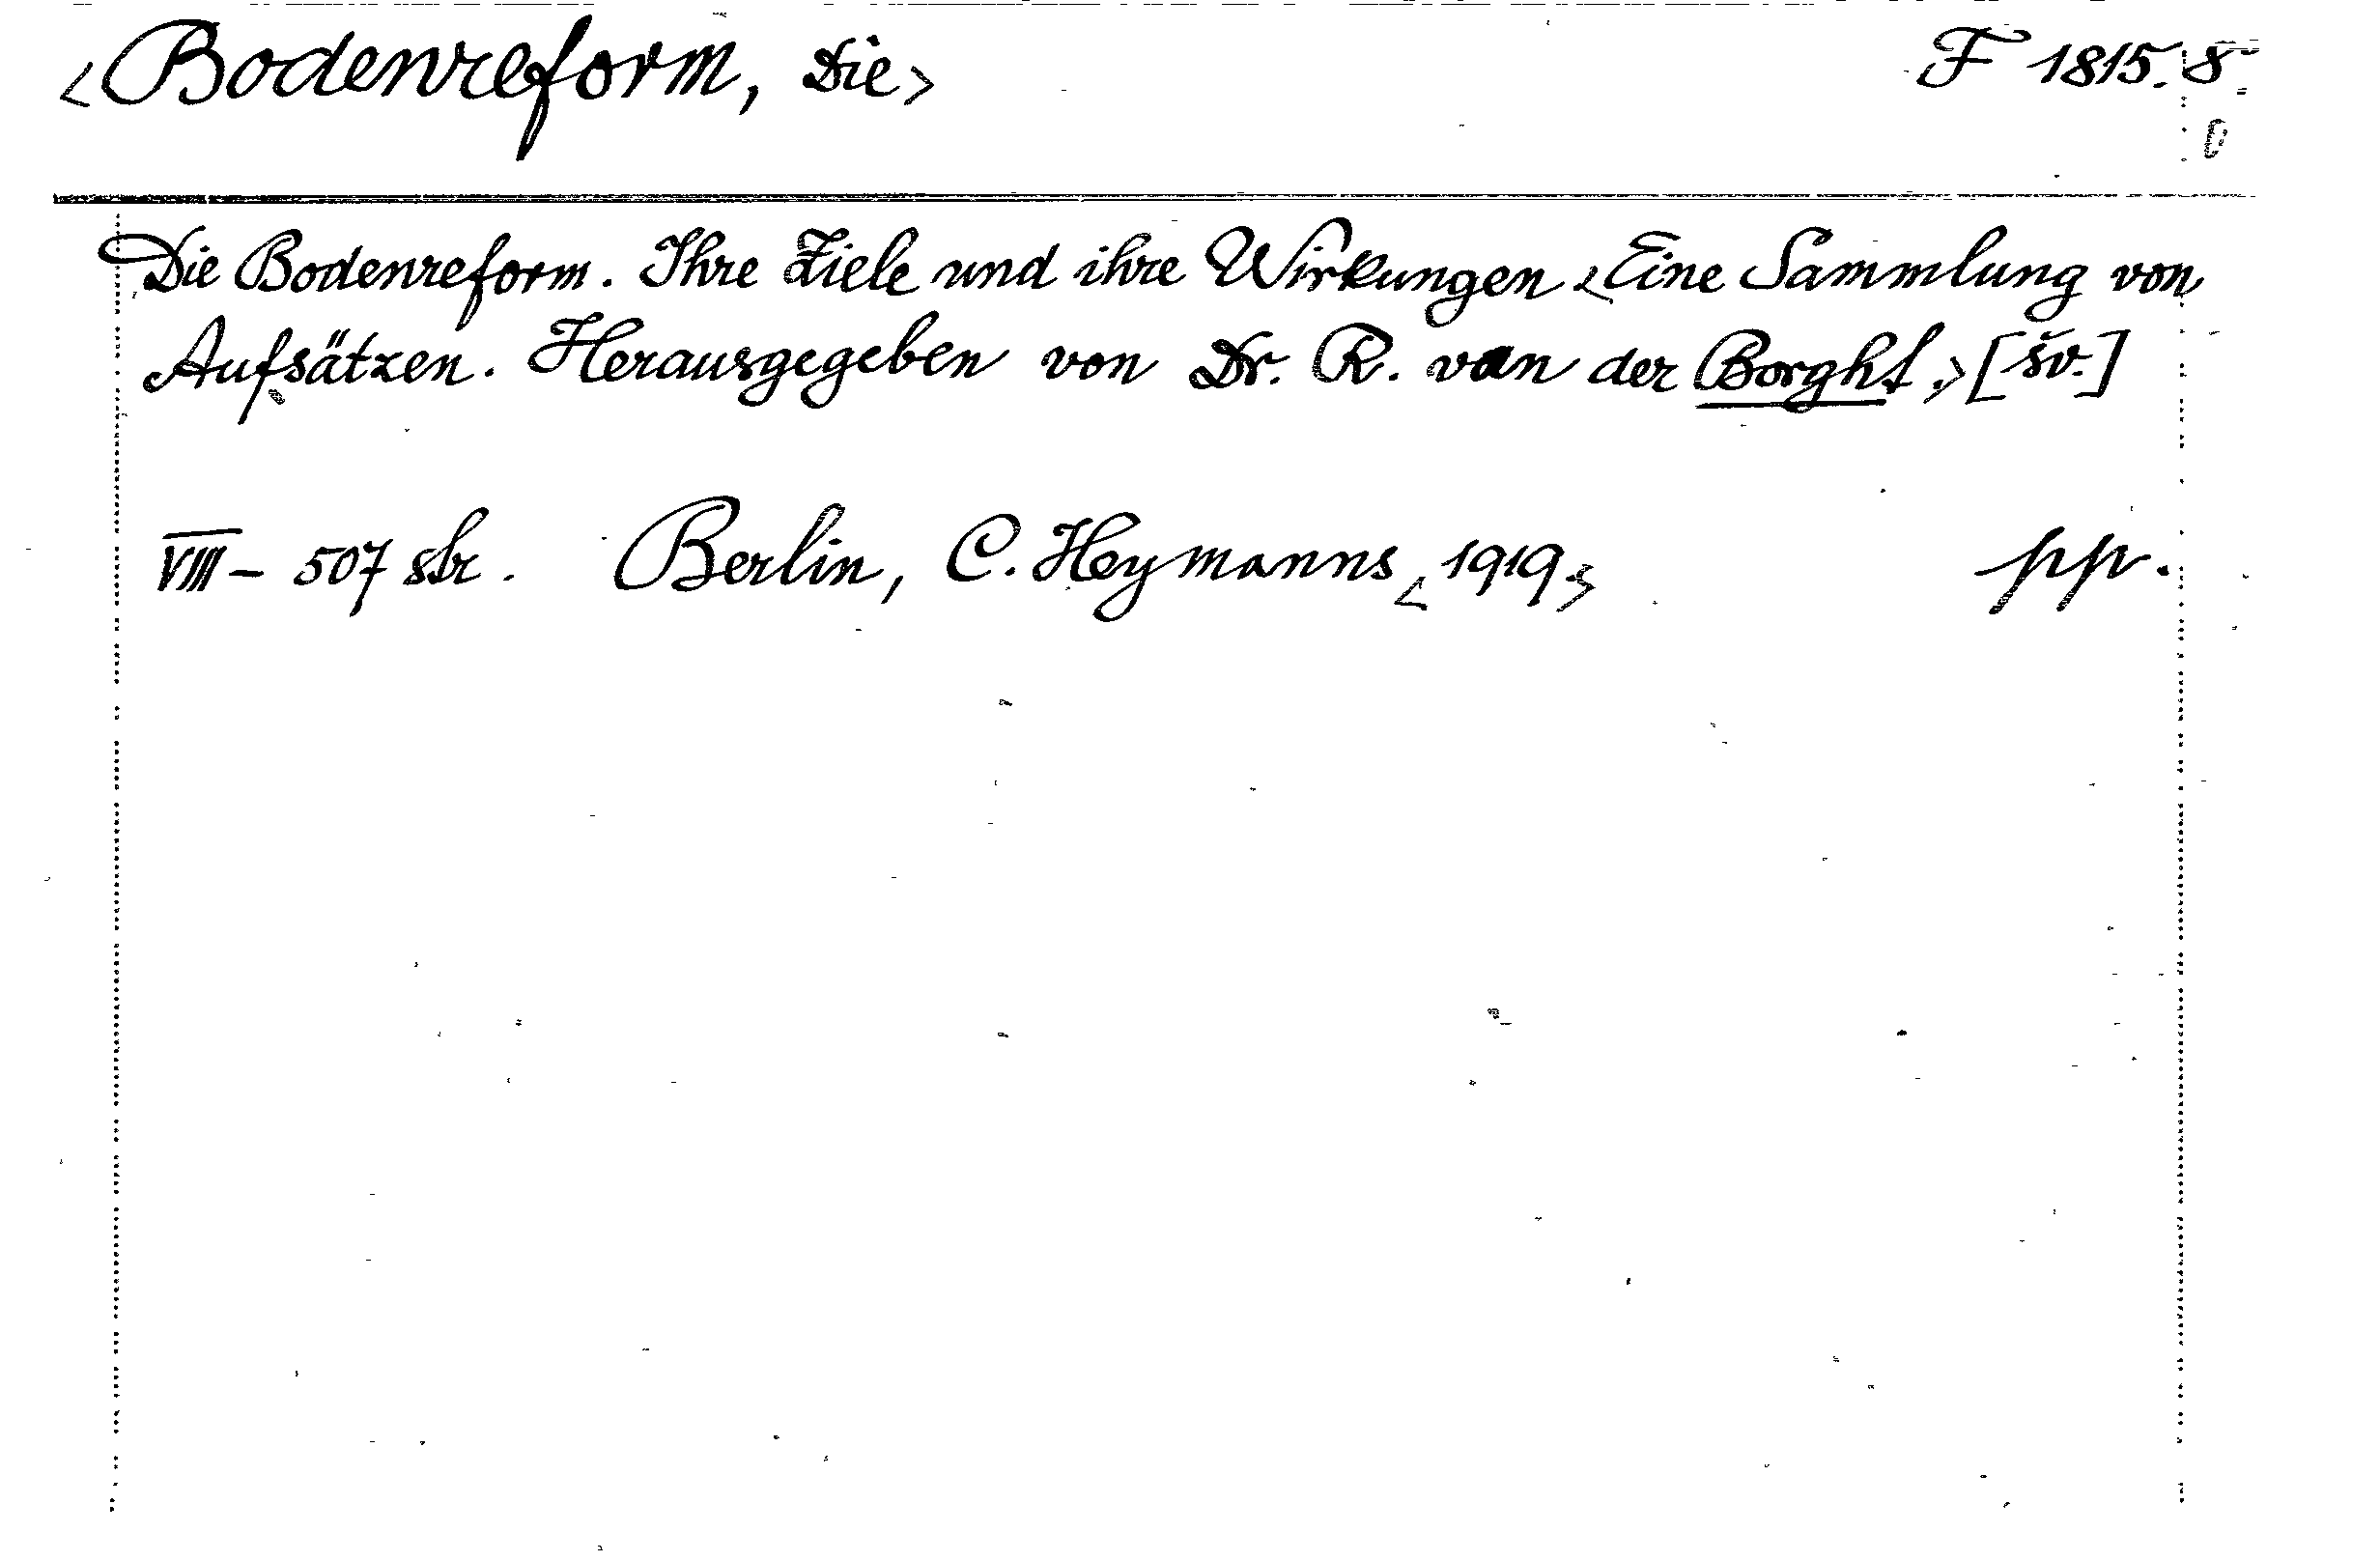 <Bodenreform, Die> F 1815. 8.
Die Bodenreform. Ihre Ziele und ihre Wirkungen <Eine Sammlung von
Aufsätzen. Herausgegeben von Dr. R. van der Borght.> [šv.]
VIII - 507 str. Berlin, C. Heymanns <1919.> pp.